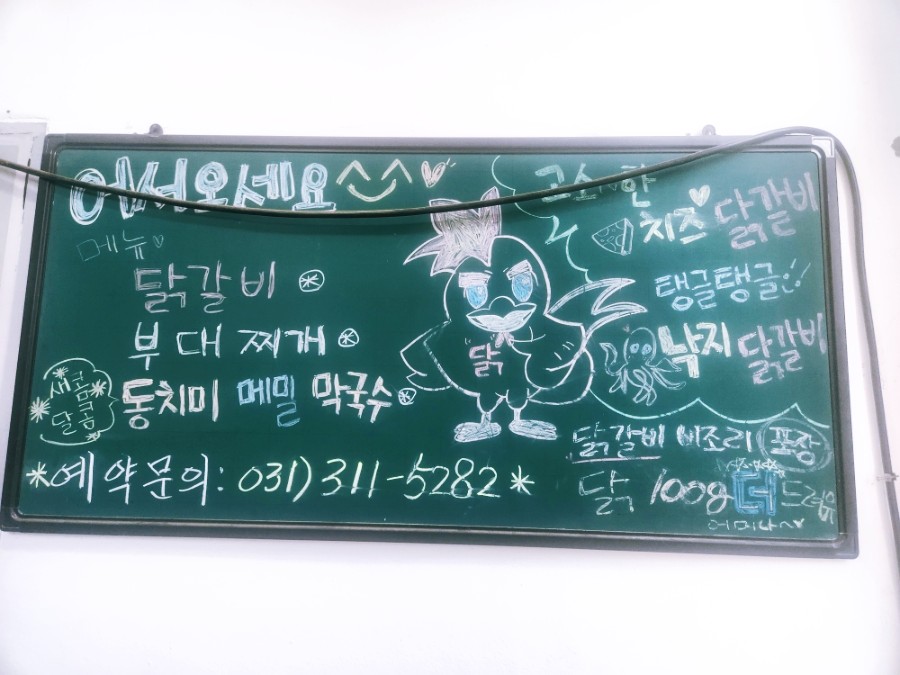 어서오세요 ^^ ♡
메뉴♡
닭갈비
부대찌개
새콤달콤
동치미 메밀 막국수
*예약문의: 031) 311-5282*
닭
고소한
치즈 닭갈비
탱글탱글!!
낙지 닭갈비
닭갈비 비조리 포장
닭 100g 더 드려유
어머나~♡